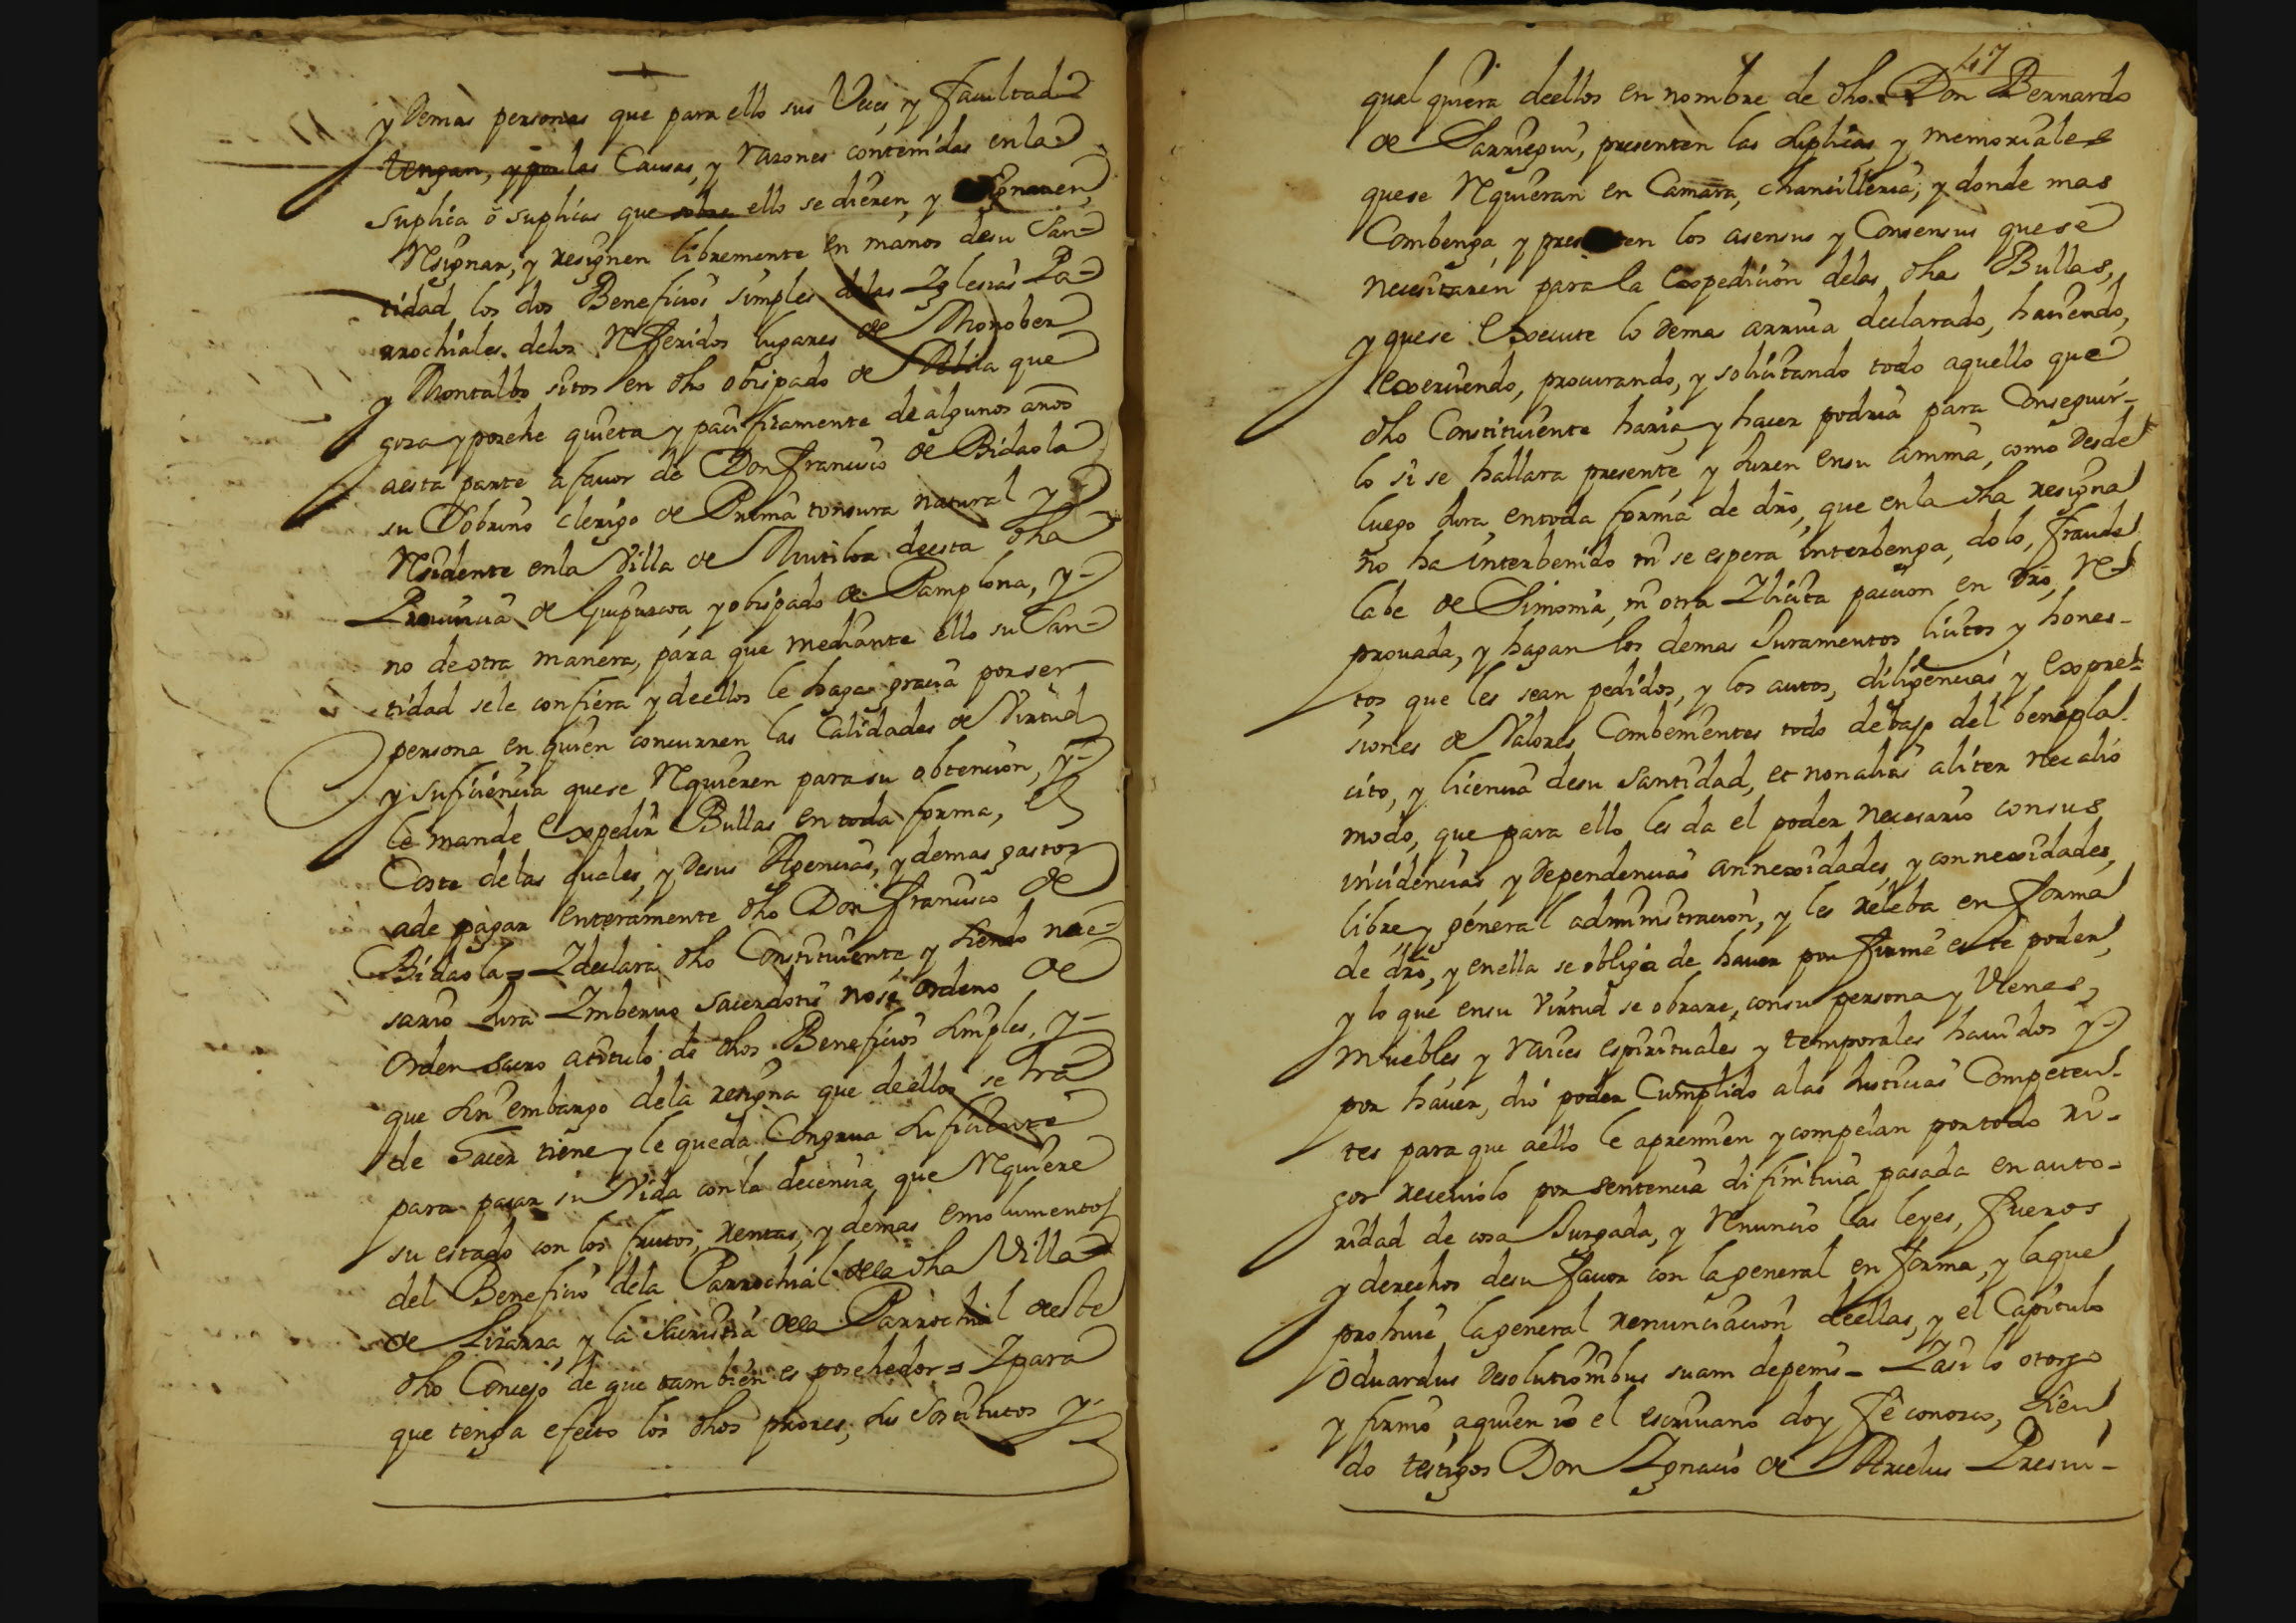 y demas personas que para ello sus Veces, y facultad
tengan, y por las Causas, y razones contenidas en la
suplica ô suplicas que sobre ello se dieren, y signaren,
Resignar, y resignen libremente en manos de su San-
tidad los dos Beneficios simples de las Iglesias Pa-
rrochiales de los Referidos lugares de Monober
y Montalbo sitos en dho obispado de Abila que
goza y posehe quieta y pacificamente de algunos años
a esta parte a favor de Don Francisco de Bidaola
su Sobrino clerigo de Prima tonsura natural y
Residente en la Villa de Mutiloa de esta dha
Prouincia de Guipuzcoa, y obispado de Pamplona, y-
no de otra manera, para que mediante ello su San-
tidad se le confiera y de ellos le haga gracia por ser
persona en quien concurren las Calidades de Virtud
y suficiencia que se Requieren para su obtencion, y-
le mande Expedir Bullas en toda forma, el
Coste de las quales, y de sus Agencias, y demas gastos
a de pagar enteramente dho Don Francisco de
Bidaola = I declara dho Constituiente y siendo nece-
sario Jura Imberuo sacerdotis no se ordeno de
Orden sacro a titulo de dhos Beneficios simples, y-
que sin embargo de la resigna que de ellos se ha
de hacer tiene y le queda Congrua suficiente
para pasar su Vida con la decencia que Requiere
su estado con los frutos, rentas, y demas emolumentos
del Beneficio de la Parrochial de la dha Villa
de Lizarza, y la Sacristia de la Parrochial de este
dho Concejo de que tambien es posehedor = I para
que tenga efecto los dhos prores, sus sostitutos y-
47
qualquiera de ellos en nombre de dho Don Bernardo
de Sarriegui, presenten las suplicas y memoriales
que se Requieran en Camara, chancilleria, y donde mas
Combenga, y presten los asensus y Consensus que se
necesitaren para la Expedicion de las dhas Bullas,
y que se Execute lo demas arriua declarado, haciendo,
Exerciendo, procurando, y solicitando todo aquello que
dho Constituiente haria y hacer podria para Conseguir-
lo si se hallara presente y Juren en su anima, como desde
luego Jura en toda forma de dro, que en la dha resigna
no ha interbenido ni se espera interbenga, dolo, fraude
labe de Simonia, ni otra Ilicita paccion en dro, Re-
prouada, y hagan los demas Juramentos licitos y hones-
tos que les sean pedidos, y los autos, diligencias y Expre-
siones de Valores Combenientes todo debajo del benepla-
cito, y licencia de su Santidad, et non alias aliter nec alio
modo, que para ello les da el poder necesario con sus
incidencias y dependencias annexidades, y connexidades,
libre y general administracion, y les releba en forma
de dro, y en ella se obliga de hauer por firme este poder,
y lo que en su virtud se obrare, con su persona y Vienes,
muebles y raices espirituales y temporales hauidos y
por hauer, dió poder Cumplido a las Justicias Competen-
tes para que a ello le apremien y compelan por todo ri-
gor reciuiolo por sentencia difinitiua pasada en auto-
ridad de cosa Juzgada, y Renuncio las leyes, fueros
y derechos de su fauor con la general en forma, y la que
prohiue la general renunciacion de ellas, y el Capitulo
Oduardus desolutionibus suam de penis - I asi lo otorgo
y firmo a quien io el escriuano doy fê conozco, Sien-
do testigos Don Ignacio de Arcelus Presui-